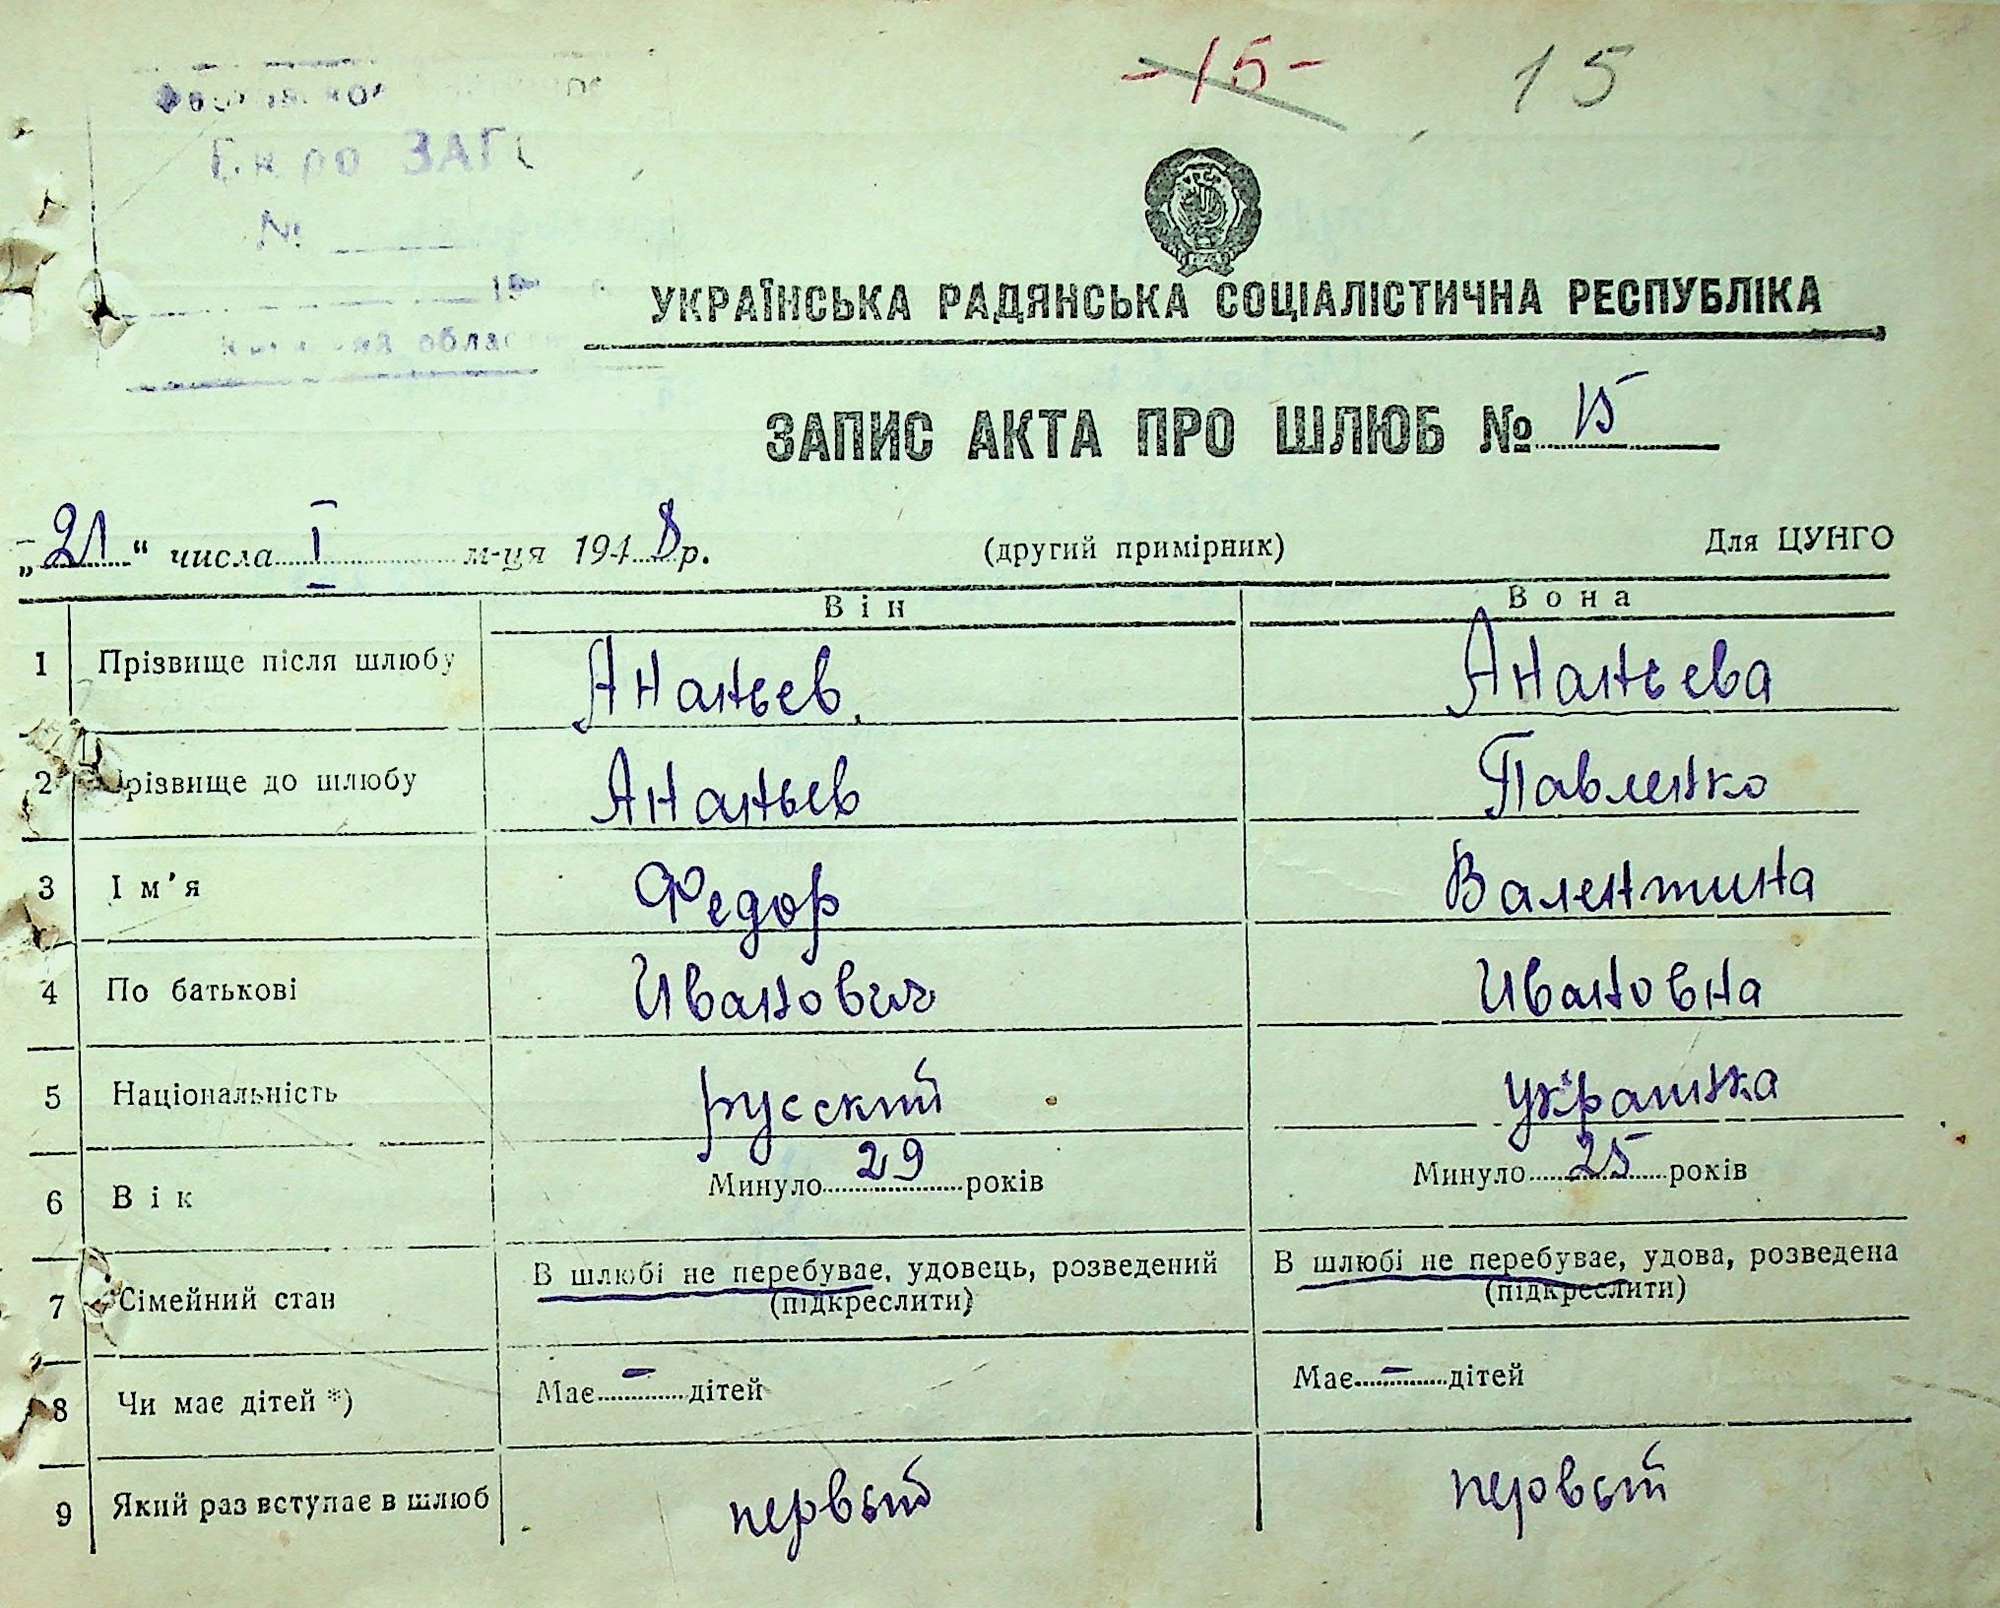 -15- 15
Бюро ЗАГС
№
19
область
УКРАЇНСЬКА РАДЯНСЬКА СОЦІАЛІСТИЧНА РЕСПУБЛІКА
ЗАПИС АКТА ПРО ШЛЮБ № 15
„21“ числа I м-ця 1948 р. (другий примірник) Для ЦУНГО
Він Вона
1 Прізвище після шлюбу Ананьев. Ананьева
2 Прізвище до шлюбу Ананьев Павленко
3 Ім'я Федор Валентина
4 По батькові Иванович Ивановна
5 Національність русский украинка
6 Вік Минуло 29 років Минуло 25 років
7 Сімейний стан В шлюбі не перебуває, удовець, розведений (підкреслити) В шлюбі не перебуває, удова, розведена (підкреслити)
8 Чи має дітей *) Має - дітей Має - дітей
9 Який раз вступає в шлюб первый первый